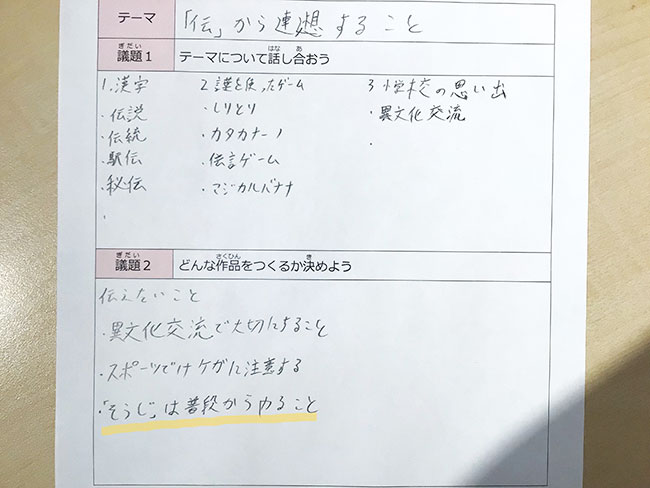 テーマ 「伝」から連想すること
ぎだい はな あ
議題1 テーマについて話し合おう
1.漢字
・伝説
・伝統
・駅伝
・秘伝
・
2 謹を使ったゲーム
・しりとり
・カタカナーノ
・伝言ゲーム
・マジカルバナナ
3 小学校の思い出
・異文化交流
・
ぎだい さくひん き
議題2 どんな作品をつくるか決めよう
伝えたいこと
・異文化交流で大切にすること
・スポーツではケガに注意する
・「そうじ」は普段からやること